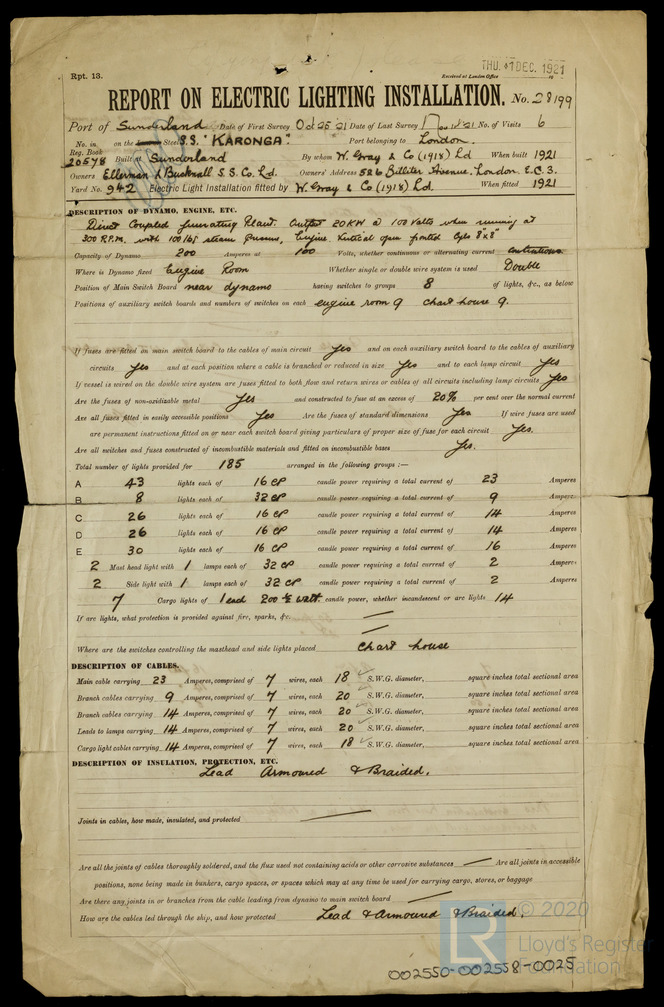 Rpt. 13.
Received at London Office
THU. 1 DEC. 1921
REPORT ON ELECTRIC LIGHTING INSTALLATION. No. 28199
Port of Sunderland Date of First Survey Oct 25 '21 Date of Last Survey No. of Visits 6
No. in Reg. Book on the Steel S.S. "KARONGA". Port belonging to London.
20578 Built at Sunderland By whom W. Gray & Co (1918) Ld When built 1921
Owners Ellerman & Bucknall S.S. Co. Ld. Owners' Address 52 6 Billiter Avenue, London. E.C.3.
Yard No. 942 Electric Light Installation fitted by W. Gray & Co (1918) Ld. When fitted 1921
DESCRIPTION OF DYNAMO, ENGINE, ETC.
Direct Coupled generating Plant. Output 20KW @ 100 Volts when running at
300 R.P.M. with 100 lbs steam pressure, Engine Vertical open fronted Cyls 8"x8"
Capacity of Dynamo 200 Amperes at 100 Volts, whether continuous or alternating current continuous
Where is Dynamo fixed Engine Room Whether single or double wire system is used Double
Position of Main Switch Board near dynamo having switches to groups 8 of lights, &c., as below
Positions of auxiliary switch boards and numbers of switches on each engine room 9 chart house 9.
If fuses are fitted on main switch board to the cables of main circuit Yes and on each auxiliary switch board to the cables of auxiliary
circuits Yes and at each position where a cable is branched or reduced in size Yes and to each lamp circuit Yes
If vessel is wired on the double wire system are fuses fitted to both flow and return wires or cables of all circuits including lamp circuits Yes
Are the fuses of non-oxidizable metal Yes and constructed to fuse at an excess of 20% per cent over the normal current
Are all fuses fitted in easily accessible positions Yes Are the fuses of standard dimensions Yes If wire fuses are used
are permanent instructions fitted on or near each switch board giving particulars of proper size of fuse for each circuit Yes.
Are all switches and fuses constructed of incombustible materials and fitted on incombustible bases Yes.
Total number of lights provided for 185 arranged in the following groups :—
A 43 lights each of 16 CP candle power requiring a total current of 23 Amperes
B 8 lights each of 32 CP candle power requiring a total current of 9 Amperes
C 26 lights each of 16 CP candle power requiring a total current of 14 Amperes
D 26 lights each of 16 CP candle power requiring a total current of 14 Amperes
E 30 lights each of 16 CP candle power requiring a total current of 16 Amperes
2 Mast head light with 1 lamps each of 32 CP candle power requiring a total current of 2 Amperes
2 Side light with 1 lamps each of 32 CP candle power requiring a total current of 2 Amperes
7 Cargo lights of 1 each 200 ½ watt. candle power, whether incandescent or arc lights 14
If arc lights, what protection is provided against fire, sparks, &c.
Where are the switches controlling the masthead and side lights placed Chart house
DESCRIPTION OF CABLES.
Main cable carrying 23 Amperes, comprised of 7 wires, each 18 S.W.G. diameter, square inches total sectional area
Branch cables carrying 9 Amperes, comprised of 7 wires, each 20 S.W.G. diameter, square inches total sectional area
Branch cables carrying 14 Amperes, comprised of 7 wires, each 20 S.W.G. diameter, square inches total sectional area
Leads to lamps carrying 14 Amperes, comprised of 7 wires, each 20 S.W.G. diameter, square inches total sectional area
Cargo light cables carrying 14 Amperes, comprised of 7 wires, each 18 S.W.G. diameter, square inches total sectional area
DESCRIPTION OF INSULATION, PROTECTION, ETC.
Lead Armoured & Braided.
Joints in cables, how made, insulated, and protected
Are all the joints of cables thoroughly soldered, and the flux used not containing acids or other corrosive substances — Are all joints in accessible
positions, none being made in bunkers, cargo spaces, or spaces which may at any time be used for carrying cargo, stores, or baggage
Are there any joints in or branches from the cable leading from dynamo to main switch board —
How are the cables led through the ship, and how protected Lead & Armoured & Braided.
© 2020
LR
Lloyd's Register
Foundation
002550-002558-0025